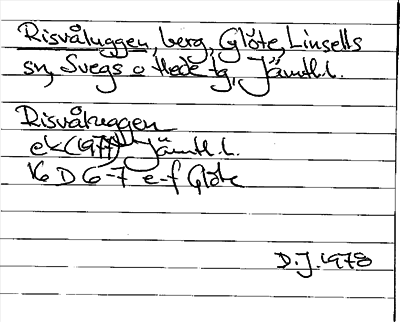 Risvåluggen, berg, Glöte, Linsells
sn, Svegs o Hede tg, Jämtl.l.
Risvåluggen
ek (1977) Jämtl.l.
16 D 6-7 e-f Glöte
D.J. 1978